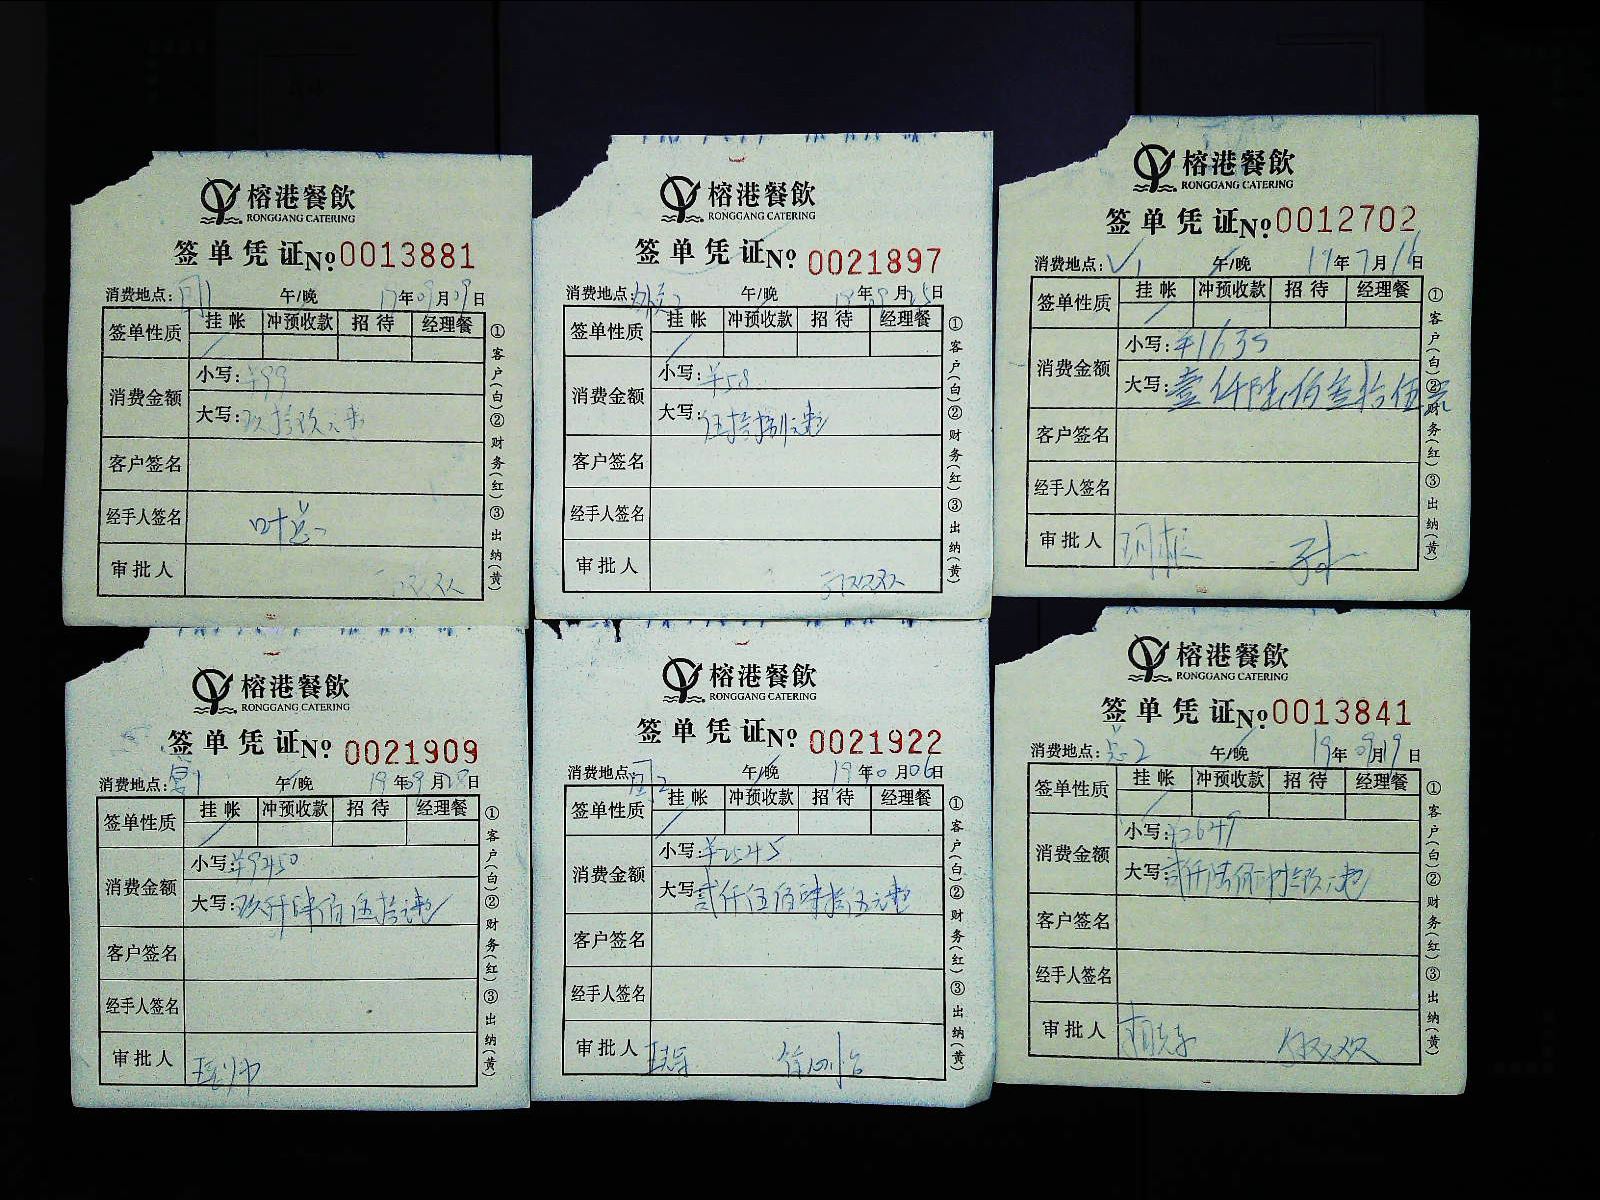 榕港餐飲
RONGGANG CATERING
签单凭证 No 0013881
消费地点: 午/晚 年09月09日
签单性质 挂帐 冲预收款 招待 经理餐
消费金额 小写:¥99
大写:玖拾玖元整
客户签名
经手人签名 叶总
审批人
①客户(白)②财务(红)③出纳(黄)
榕港餐飲
RONGGANG CATERING
签单凭证 No 0021897
消费地点: 午/晚 19年09月25日
签单性质 挂帐 冲预收款 招待 经理餐
消费金额 小写:¥58
大写:伍拾捌元整
客户签名
经手人签名
审批人
①客户(白)②财务(红)③出纳(黄)
榕港餐飲
RONGGANG CATERING
签单凭证 No 0012702
消费地点:V1 午/晚 19年7月16日
签单性质 挂帐 冲预收款 招待 经理餐
消费金额 小写:¥1635
大写:壹仟陆佰叁拾伍
客户签名
经手人签名
审批人
①客户(白)②财务(红)③出纳(黄)
榕港餐飲
RONGGANG CATERING
签单凭证 No 0021909
消费地点: 午/晚 19年09月28日
签单性质 挂帐 冲预收款 招待 经理餐
消费金额 小写:¥9450
大写:玖仟肆佰伍拾元整
客户签名
经手人签名
审批人
①客户(白)②财务(红)③出纳(黄)
榕港餐飲
RONGGANG CATERING
签单凭证 No 0021922
消费地点: 午/晚 19年10月06日
签单性质 挂帐 冲预收款 招待 经理餐
消费金额 小写:¥2545
大写:贰仟伍佰肆拾五元整
客户签名
经手人签名
审批人
①客户(白)②财务(红)③出纳(黄)
榕港餐飲
RONGGANG CATERING
签单凭证 No 0013841
消费地点:总2 午/晚 19年09月19日
签单性质 挂帐 冲预收款 招待 经理餐
消费金额 小写:¥2649
大写:贰仟陆佰肆拾玖元整
客户签名
经手人签名
审批人
①客户(白)②财务(红)③出纳(黄)